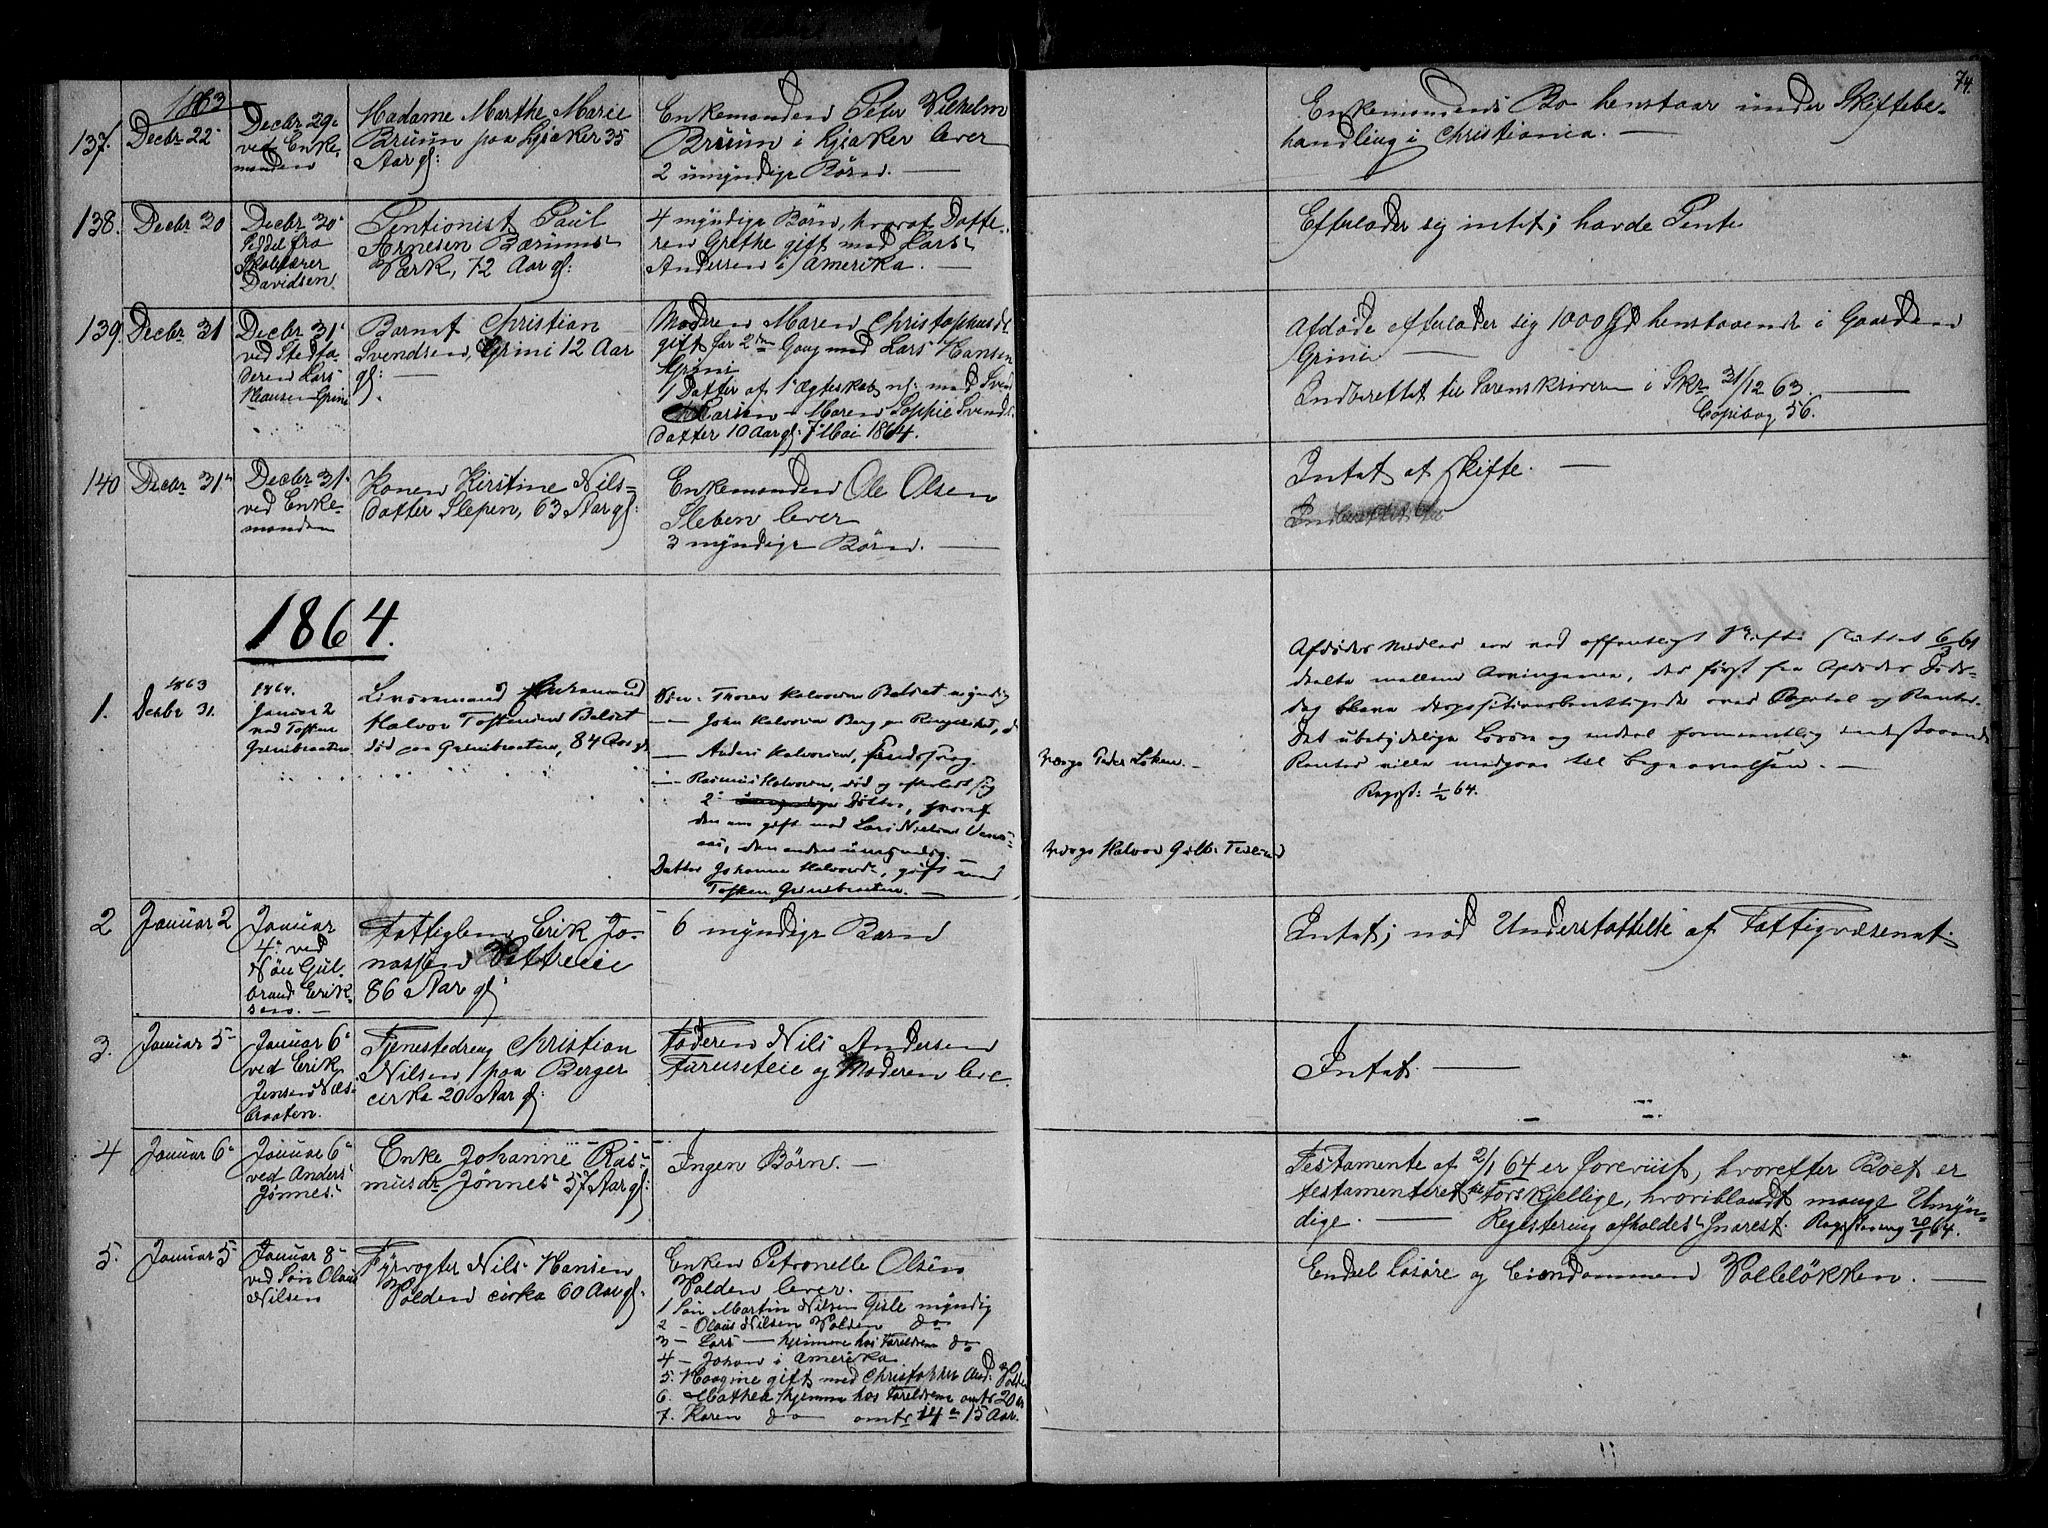 74.
1863
137.
Decbr 22
Decbr 29
ved Enke-
manden
Madame Marthe Marie
Bruun paa Lysaker 35
Aar gl:
Enkemanden Peter Vilhelm
Bruun i Lysaker lever
2 umyndige Børn. —
Enkemandens Bo henstaar under Skiftebe-
handling i Christiania. —
138.
Decbr 30
Decbr 30
Seddel fra
Skolelærer
Davidsen
Pentionist Paul
Arnesen Bærums
Værk, 72 Aar gl:
4 myndige Børn, hvoraf Datte-
ren Grethe gift med Lars
Andersen i Amerika. —
Efterlader sig intet; havde Pente
139.
Decbr 31
Decbr 31
ved Stedfa-
deren Lars
Hansen Grini
Barnet Christian
Svendsen, Grini 12 Aar
gl: —
Moderen Maren Christophersdt
gift for 2den Gang med Lars Hansen
Grini
1 Datter af 1. Ægteskab nl: med Svend
Larsen - Maren Sophie Svends-
datter 10 Aar gl: 7 Mai 1864.
Afdøde efterlader sig 1000 Spd henstaaende i Gaarden
Grini —
Indberettet til Sorenskriveren i Skr 31/12 63. —
Copibog 56.
140
Decbr 31
Decbr 31
ved Enke-
manden
Konen Kirstine Nils-
datter Slepen, 63 Aar gl:
Enkemanden Ole Olsen
Sleben lever
3 myndige Børn. —
Intet at skifte. —
1864.
1.
1863
Decbr 31.
1864.
Januar 2
ved Tosten
Grinibraaten
Halvor Tostensen
død paa Grinibraaten, 84 Aar gl
Søn: Thorer Halvorsen myndig
— John Halvorsen Berg paa Ringeriket, do
— Anders Halvorsen,
— Rasmus Halvorsen, død og efterladt sig
2 umyndige Døttre, hvoraf
den ene gift med Lars Nielsen
den anden umyndig. —
Datter Johanne Halvorsd, gift med
Tosten Grinibraaten. —
Værge Peder Løken. —
Værge Halvor Gulb.
Afdødes Midler ere ved offentligt Skifte sluttet 6/3 61
deelte mellem Arvingerne, der først fra Afdødes Døds-
dag bleve dispositionsberettigede over Capital og Renter.
Det ubetydelige Løsøre og endeel formeentlig indestaaende
Renter ville medgaae til Begravelsen. —
Regst: 1/2 64.
2
Januar 2
Januar
4 ved
Søn Gul-
brand Erik-
sen. —
Fattiglem Erik Jo-
nassen
86 Aar gl
6 myndige Børn
Intet; nød Understøttelse af Fattigvæsenet.
3.
Januar 5
Januar 6
ved Erik
Jensen Næs-
braaten.
Tjenestedreng Christian
Nilsen paa Berger
cirka 20 Aar gl:
Faderen Nils Andersen
Fururseteie og Moderen leve.
Intet. —
4
Januar 6
Januar 6
ved Anders
Jønnes
Enke Johanne Ras-
musdr Jønnes 57 Aar gl:
Ingen Børn. —
Testamente af 2/1 64 er forevist, hvorefter Boet er
testamenteret til Forskjellige, hvoriblandt mange Umyn-
dige. — Registrering afholdes snarest. Registrering 20/1 64.
5.
Januar 5
Januar 8
ved Søn Olaus
Nilsen
Fyrvogter Nils Hansen
Volden cirka 60 Aar gl.
Enken Petronelle Olsen
Volden lever. —
1 Søn Martin Nilsen Gisle myndig
2 - Olaus Nilsen Volden do
3 - Lars — hjemme hos Forældrene do
4 - Johan i Amerika
5. Haagine gift med Christopher And: Volden
6. Mathea hjemme hos Forældrene omtr 20 Aar
7. Karen do omtr 14 a 15 Aar.
Endeel Løsøre og Eiendommen Volleløkken. —